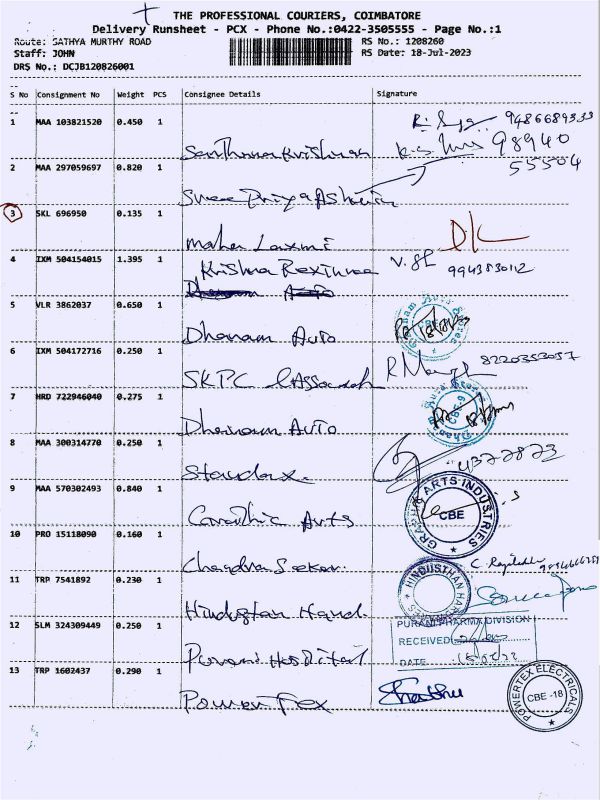 THE PROFESSIONAL COURIERS, COIMBATORE
Delivery Runsheet - PCX - Phone No.:0422-3505555 - Page No.:1
Route: SATHYA MURTHY ROAD RS No.: 1208260
Staff: JOHN RS Date: 18-Jul-2023
DRS No.: DCJB120826001
S No Consignment No Weight PCS Consignee Details Signature
1 MAA 103821520 0.450 1 9486689333
Santhana Krishnan 98940
2 MAA 297059697 0.820 1 55504
Sree Priya
3 SKL 696950 0.135 1
Maha Laxmi
4 IXM 504154015 1.395 1
Krishna
5 VLR 3862037 0.650 1
Dhanam Auto
6 IXM 504172716 0.250 1 8220353057
SKPC
7 HRD 722946040 0.275 1
Dhanam Auto
8 MAA 300314770 0.250 1
9 MAA 570302493 0.840 1
Arts
GRAPHIC ARTS INDUSTRIES
CBE
10 PRO 15118090 0.160 1
Chandra Sekar.
11 TRP 7541892 0.230 1
HINDUSTHAN
Hindustan Hand.
12 SLM 324309449 0.250 1
PURANI PHARMA DIVISION
RECEIVED
DATE
Purani Hospital
13 TRP 1602437 0.290 1
POWERTEX ELECTRICALS
CBE -18
Power Tex